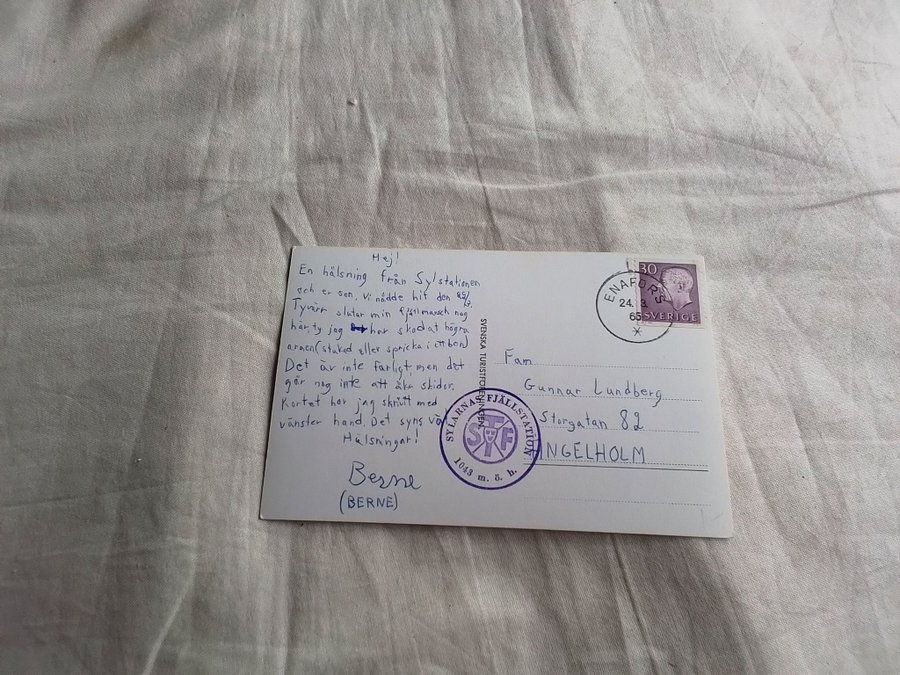 Hej!
En hälsning från Sylstationen
och er son. Vi nådde hit den
Tyvärr slutar min fjällmarsch nog
här, ty jag har skadat högra
armen (stukad eller spricka i ett ben)
Det är inte farligt, men det
går nog inte att åka skidor.
Kortet har jag skrivit med
vänster hand. Det syns väl
Hälsningar!
Berne
(BERNE)
SVENSKA TURISTFÖRENINGEN
SYLARNAS FJÄLLSTATION
STF
1043 m. ö. h.
ENAFORS
24. 3.
65
30
SVERIGE
Fam
Gunnar Lundberg
Storgatan 82
ÄNGELHOLM